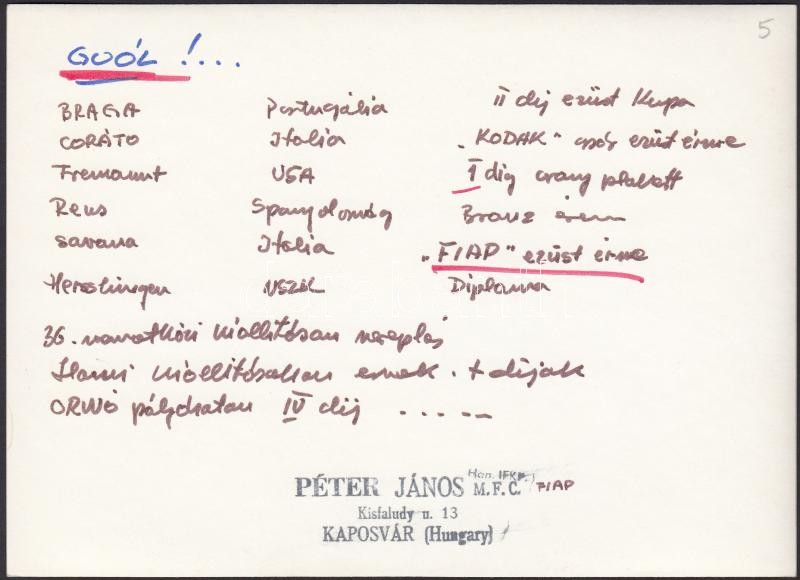 5
GOÓL !...
BRAGA Portugália II díj ezüst Kupa
CORÁTO Itália "KODAK" ezüst érme
Fremount USA I díj arany plakett
Reus Spanyolország Bronz érem
savana Itália "FIAP" ezüst érme
NSZK Diploma
36. nemzetközi kiállításon szereplés
Hazai kiállításokon + díjak
ORWO pályázaton IV díj .....
PÉTER JÁNOS Hon. IFKP. M.F.C. FIAP
Kisfaludy u. 13
KAPOSVÁR (Hungary)